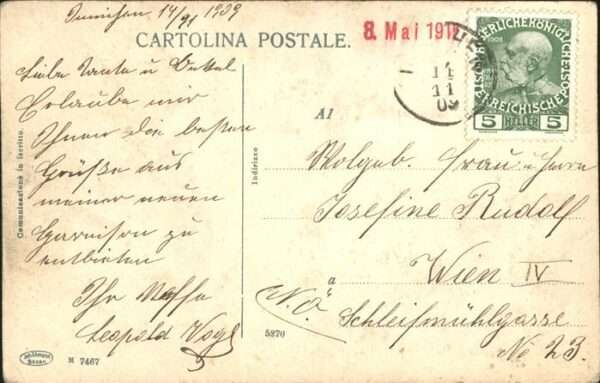 Innichen 14/11 1909
CARTOLINA POSTALE.
8. Mai 191
14
11
09
1908
5 HELLER 5
Liebe Tante u Onkel
Erlaube mir
Ihnen die besten
Grüße aus
meiner neuen
Garnison zu
entbieten
Ihr Neffe
Leopold Vogl
Comunicazione in iscritto.
Indirizzo
Al
Wolgeb. Frau u Herrn
Josefine Rudolf
Wien IV
a
N.Ö.
Schleifmühlgasse
No 23.
5270
M 7467